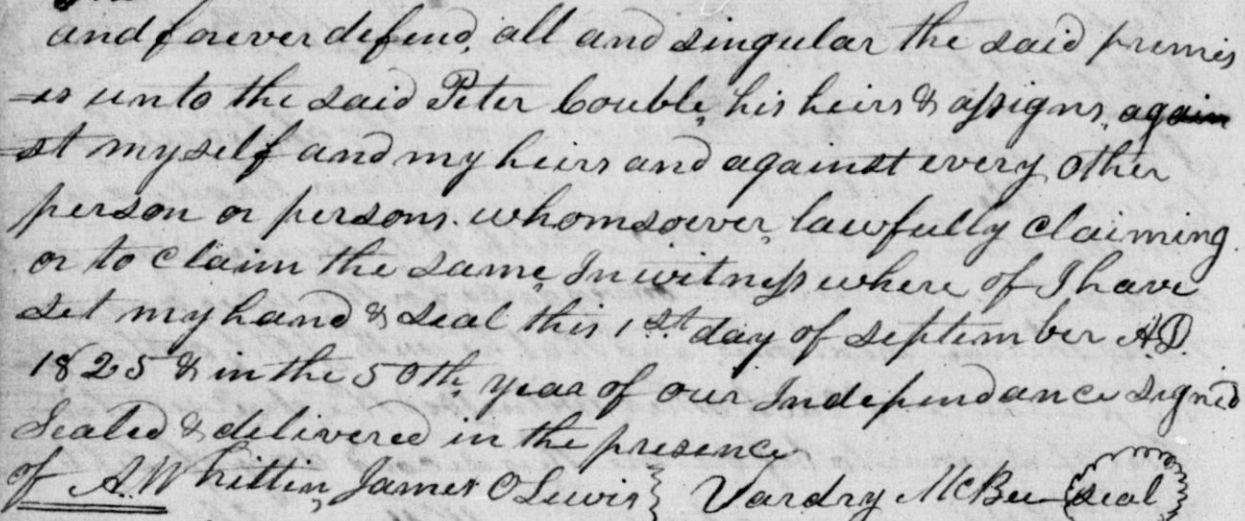 and forever defend, all and singular the said premis
=es unto the said Peter Couble, his heirs & assigns, again
=st myself and my heirs and against every other
person or persons. whomsoever, lawfully claiming
or to claim the same, In witness where of I have
set my hand & seal this 1st day of september AD.
1825 & in the 50th, year of our Independance signed
Sealed & delivered in the presence
of A. Whitten, James O Lewis } Vardry McBee (seal)